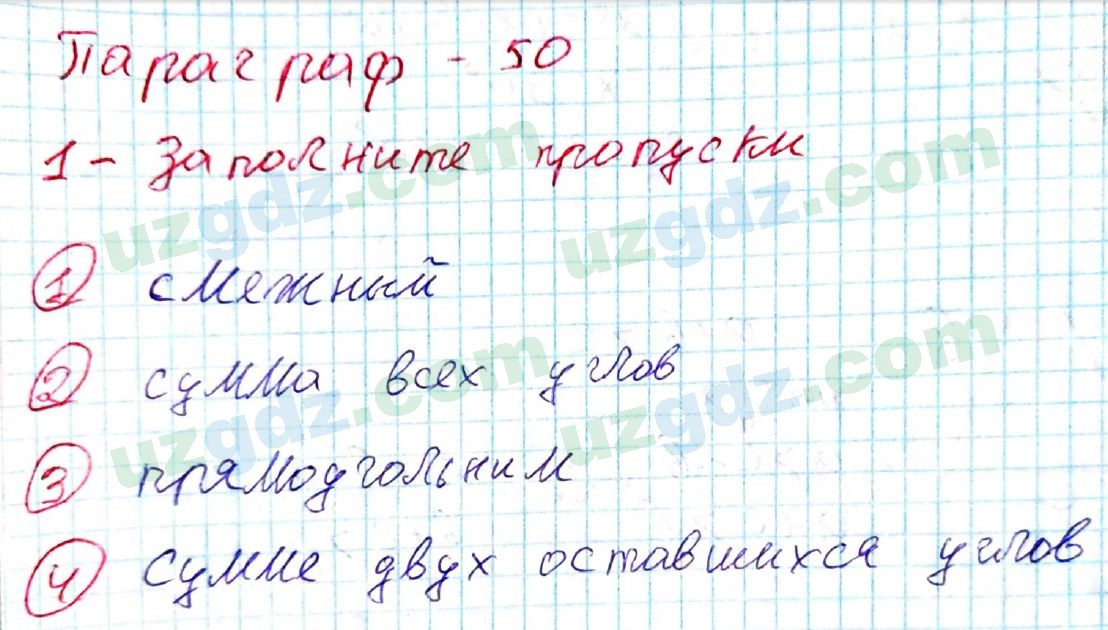 Параграф - 50
1 - Заполните пропуски
1 смежный
2 сумма всех углов
3 прямоугольник
4 сумме двух оставшихся углов
uzgdz.com
uzgdz.com
uzgdz.com
uzgdz.com